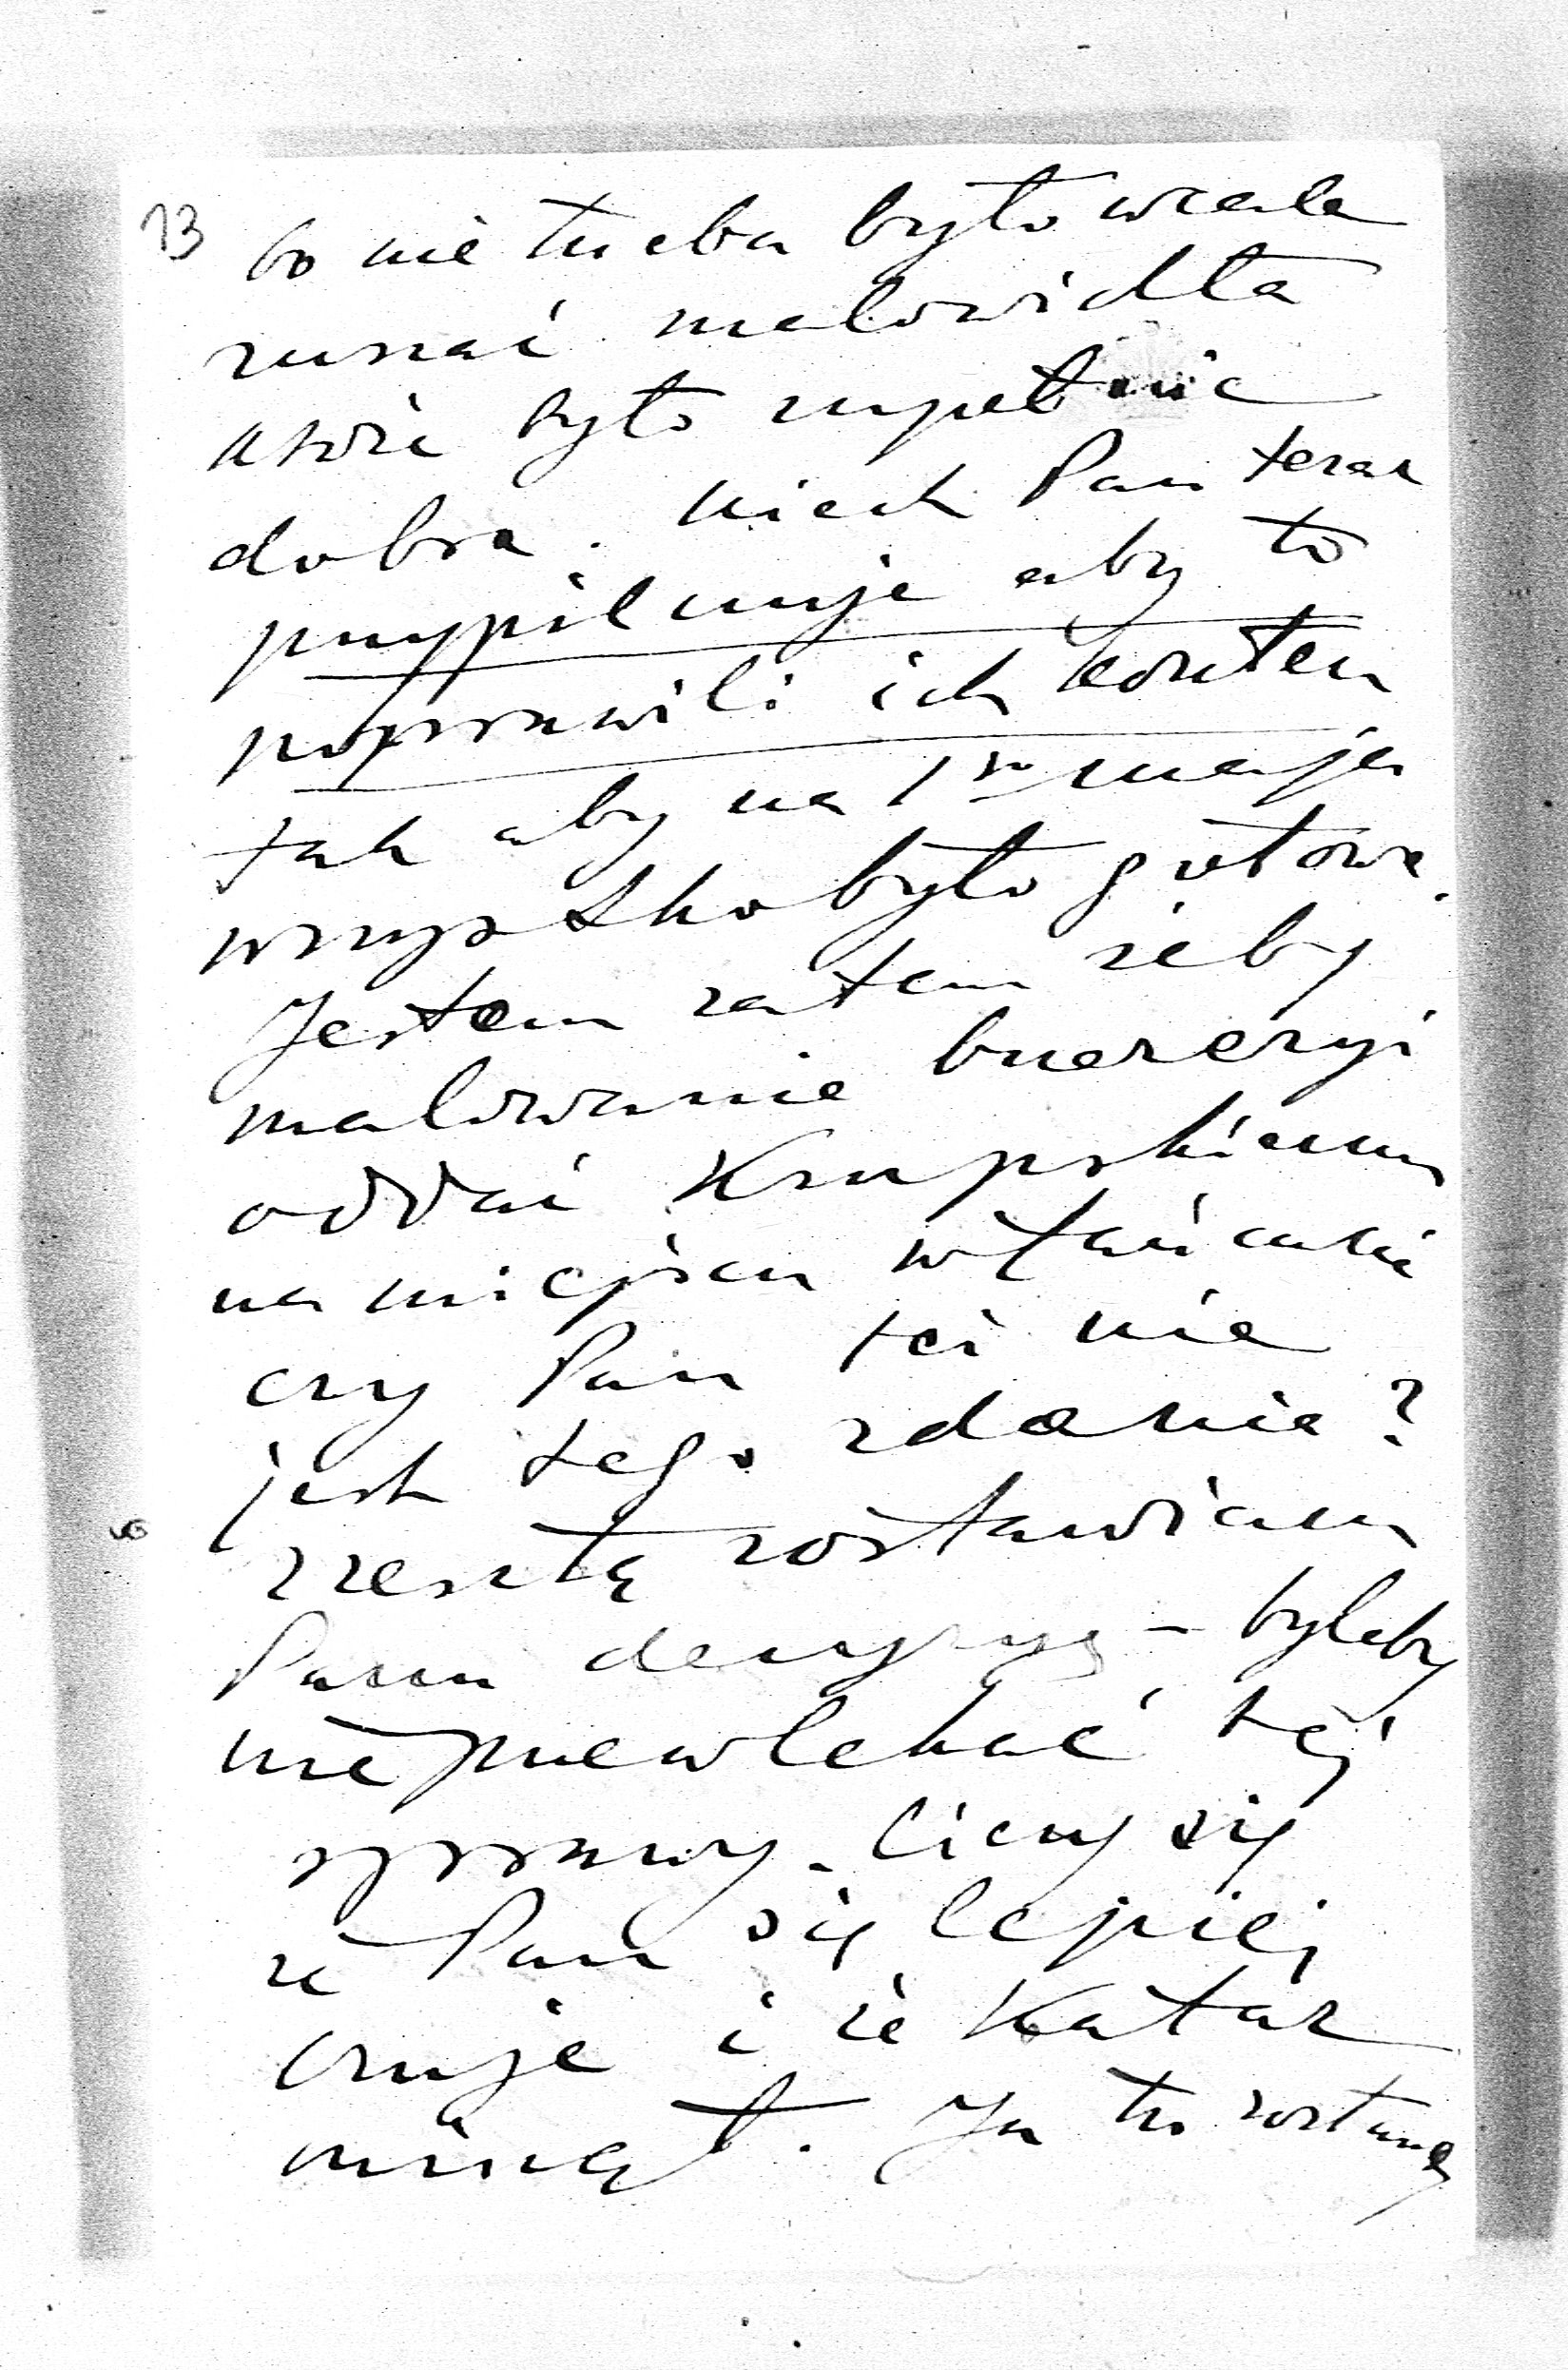 13
bo nie trzeba było wcale
ruszać malowidła
które było zupełnie
dobre. Niech Pan teraz
przypilnuje aby to
poprawili ich kosztem
tak aby na 1go maja
wszystko było gotowe.
Jestem zatem żeby
malowanie
oddać Krupskiemu
na miejscu w Łańcucie
czy Pan też nie
jest tego zdania?
zresztą zostawiam
Panu decyzyę – byleby
nie przewlekać tej
sprawy. Cieszy się
że Pan się lepiej
czuje i że Katar
minął. Ja tu zostanę